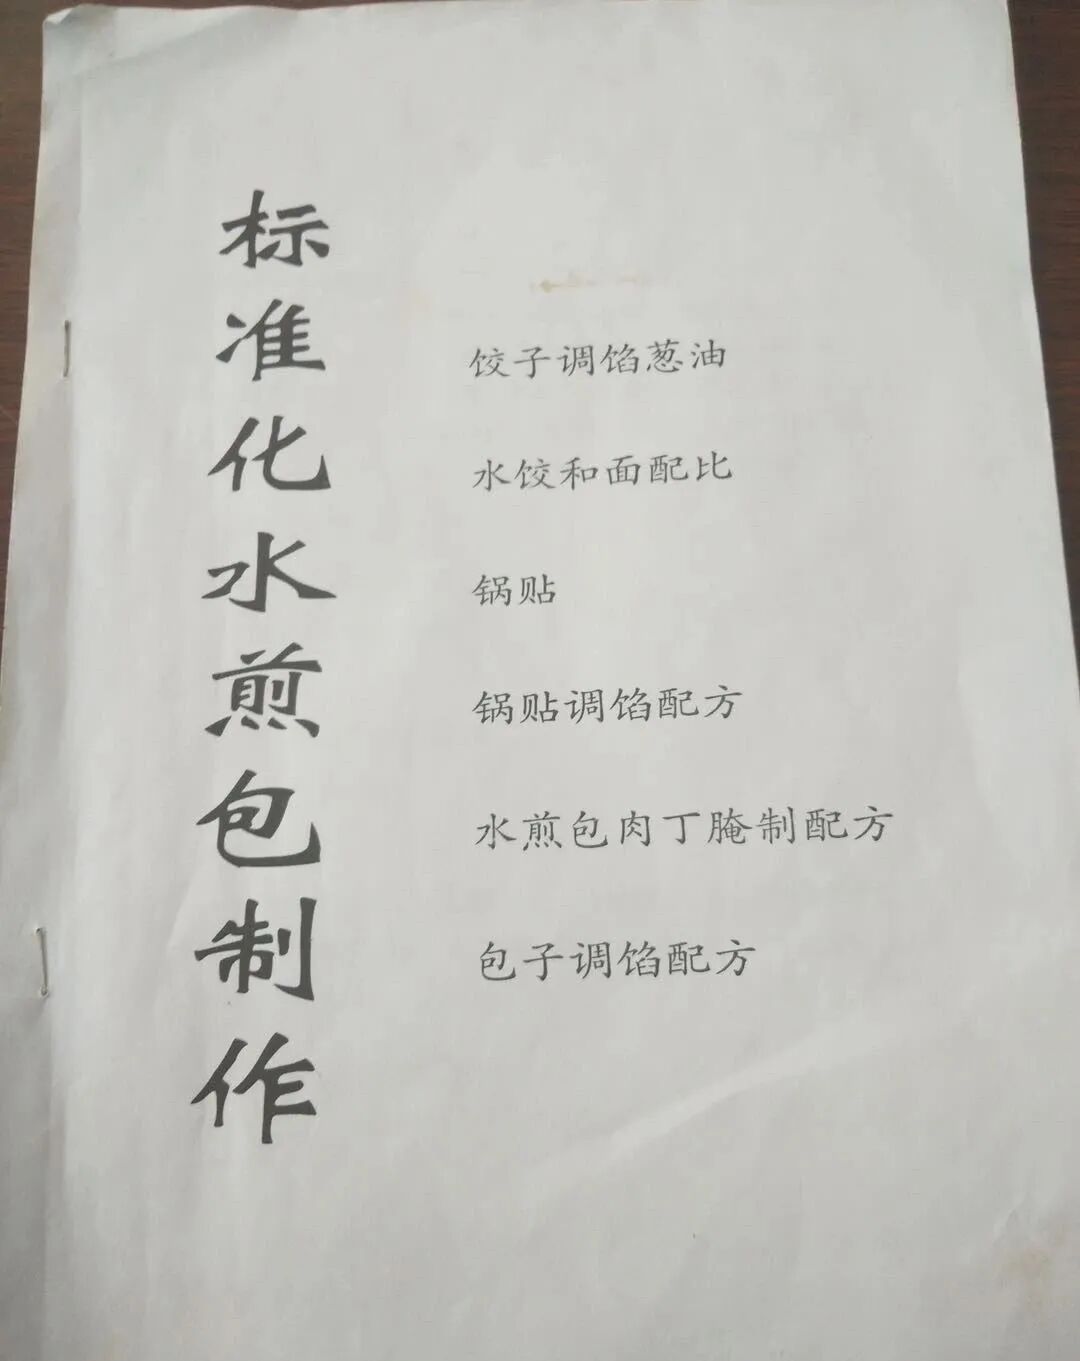 标准化水煎包制作
饺子调馅葱油
水饺和面配比
锅贴
锅贴调馅配方
水煎包肉丁腌制配方
包子调馅配方